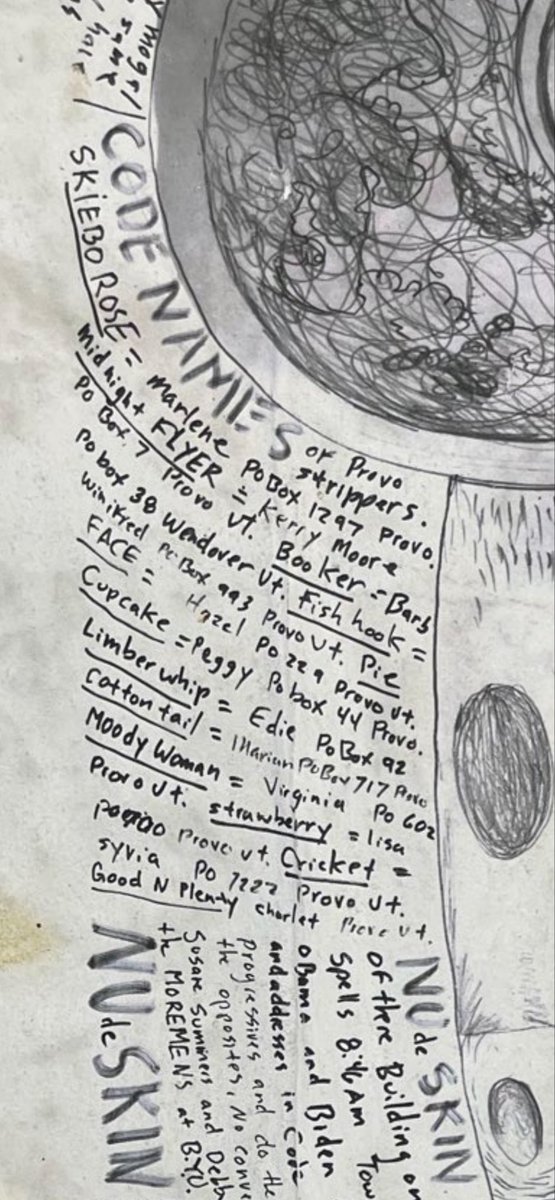 CODE NAMES of Provo strippers.
SKIEBO ROSE = Marlene PO Box 1297 Provo.
Midnight FLYER = Kerry Moore
PO Box 7 Provo Ut. Booker = Barb
Po box 38 Wendover Ut. Fish hook =
Winifred PO Box 993 Provo Ut. Pie
FACE = Hazel PO 229 Provo Ut.
Cupcake = Peggy Po box 44 Provo.
Limber whip = Edie Po Box 92
Cotton tail = Marian Po Box 717 Provo
Moody Woman = Virginia Po 602
Provo Ut. strawberry = lisa
Provo Ut. Cricket =
syvia Po 7222 Provo Ut.
Good N Plenty charlet Provo Ut.
NUde SKIN
of there Building on
Spells 8:46 AM
Obama and Biden
and addresses in Code
progressives and do the
the opposites. No
Susane Summers and Debb
the MOREMENS at B.Y.U.
NUde SKIN